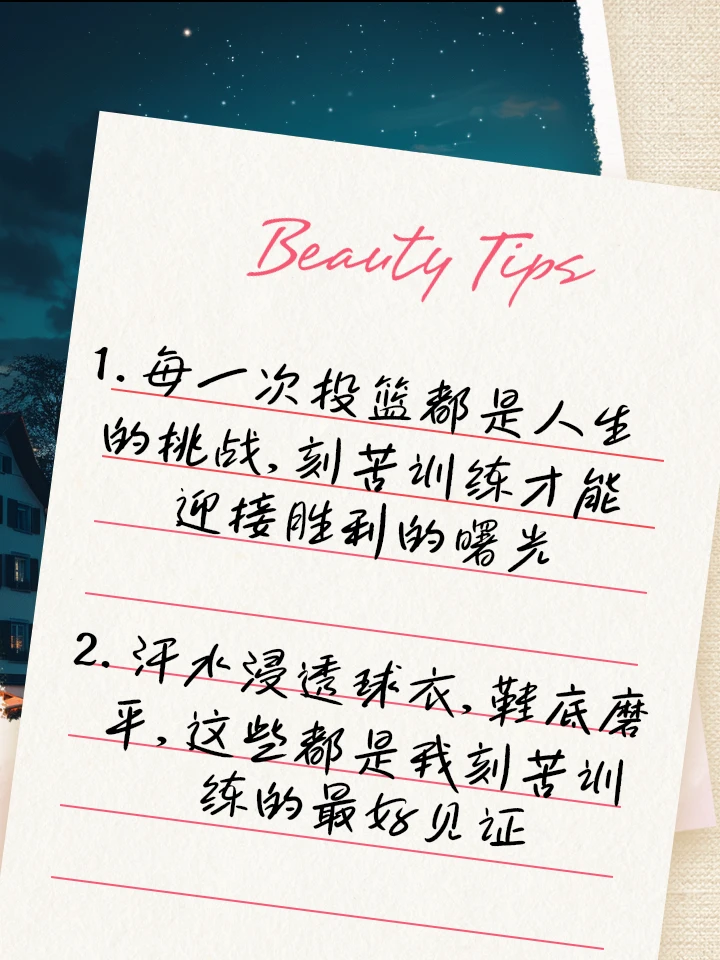 Beauty Tips
1. 每一次投篮都是人生
的挑战,刻苦训练才能
迎接胜利的曙光
2. 汗水浸透球衣,鞋底磨
平,这些都是我刻苦训
练的最好见证